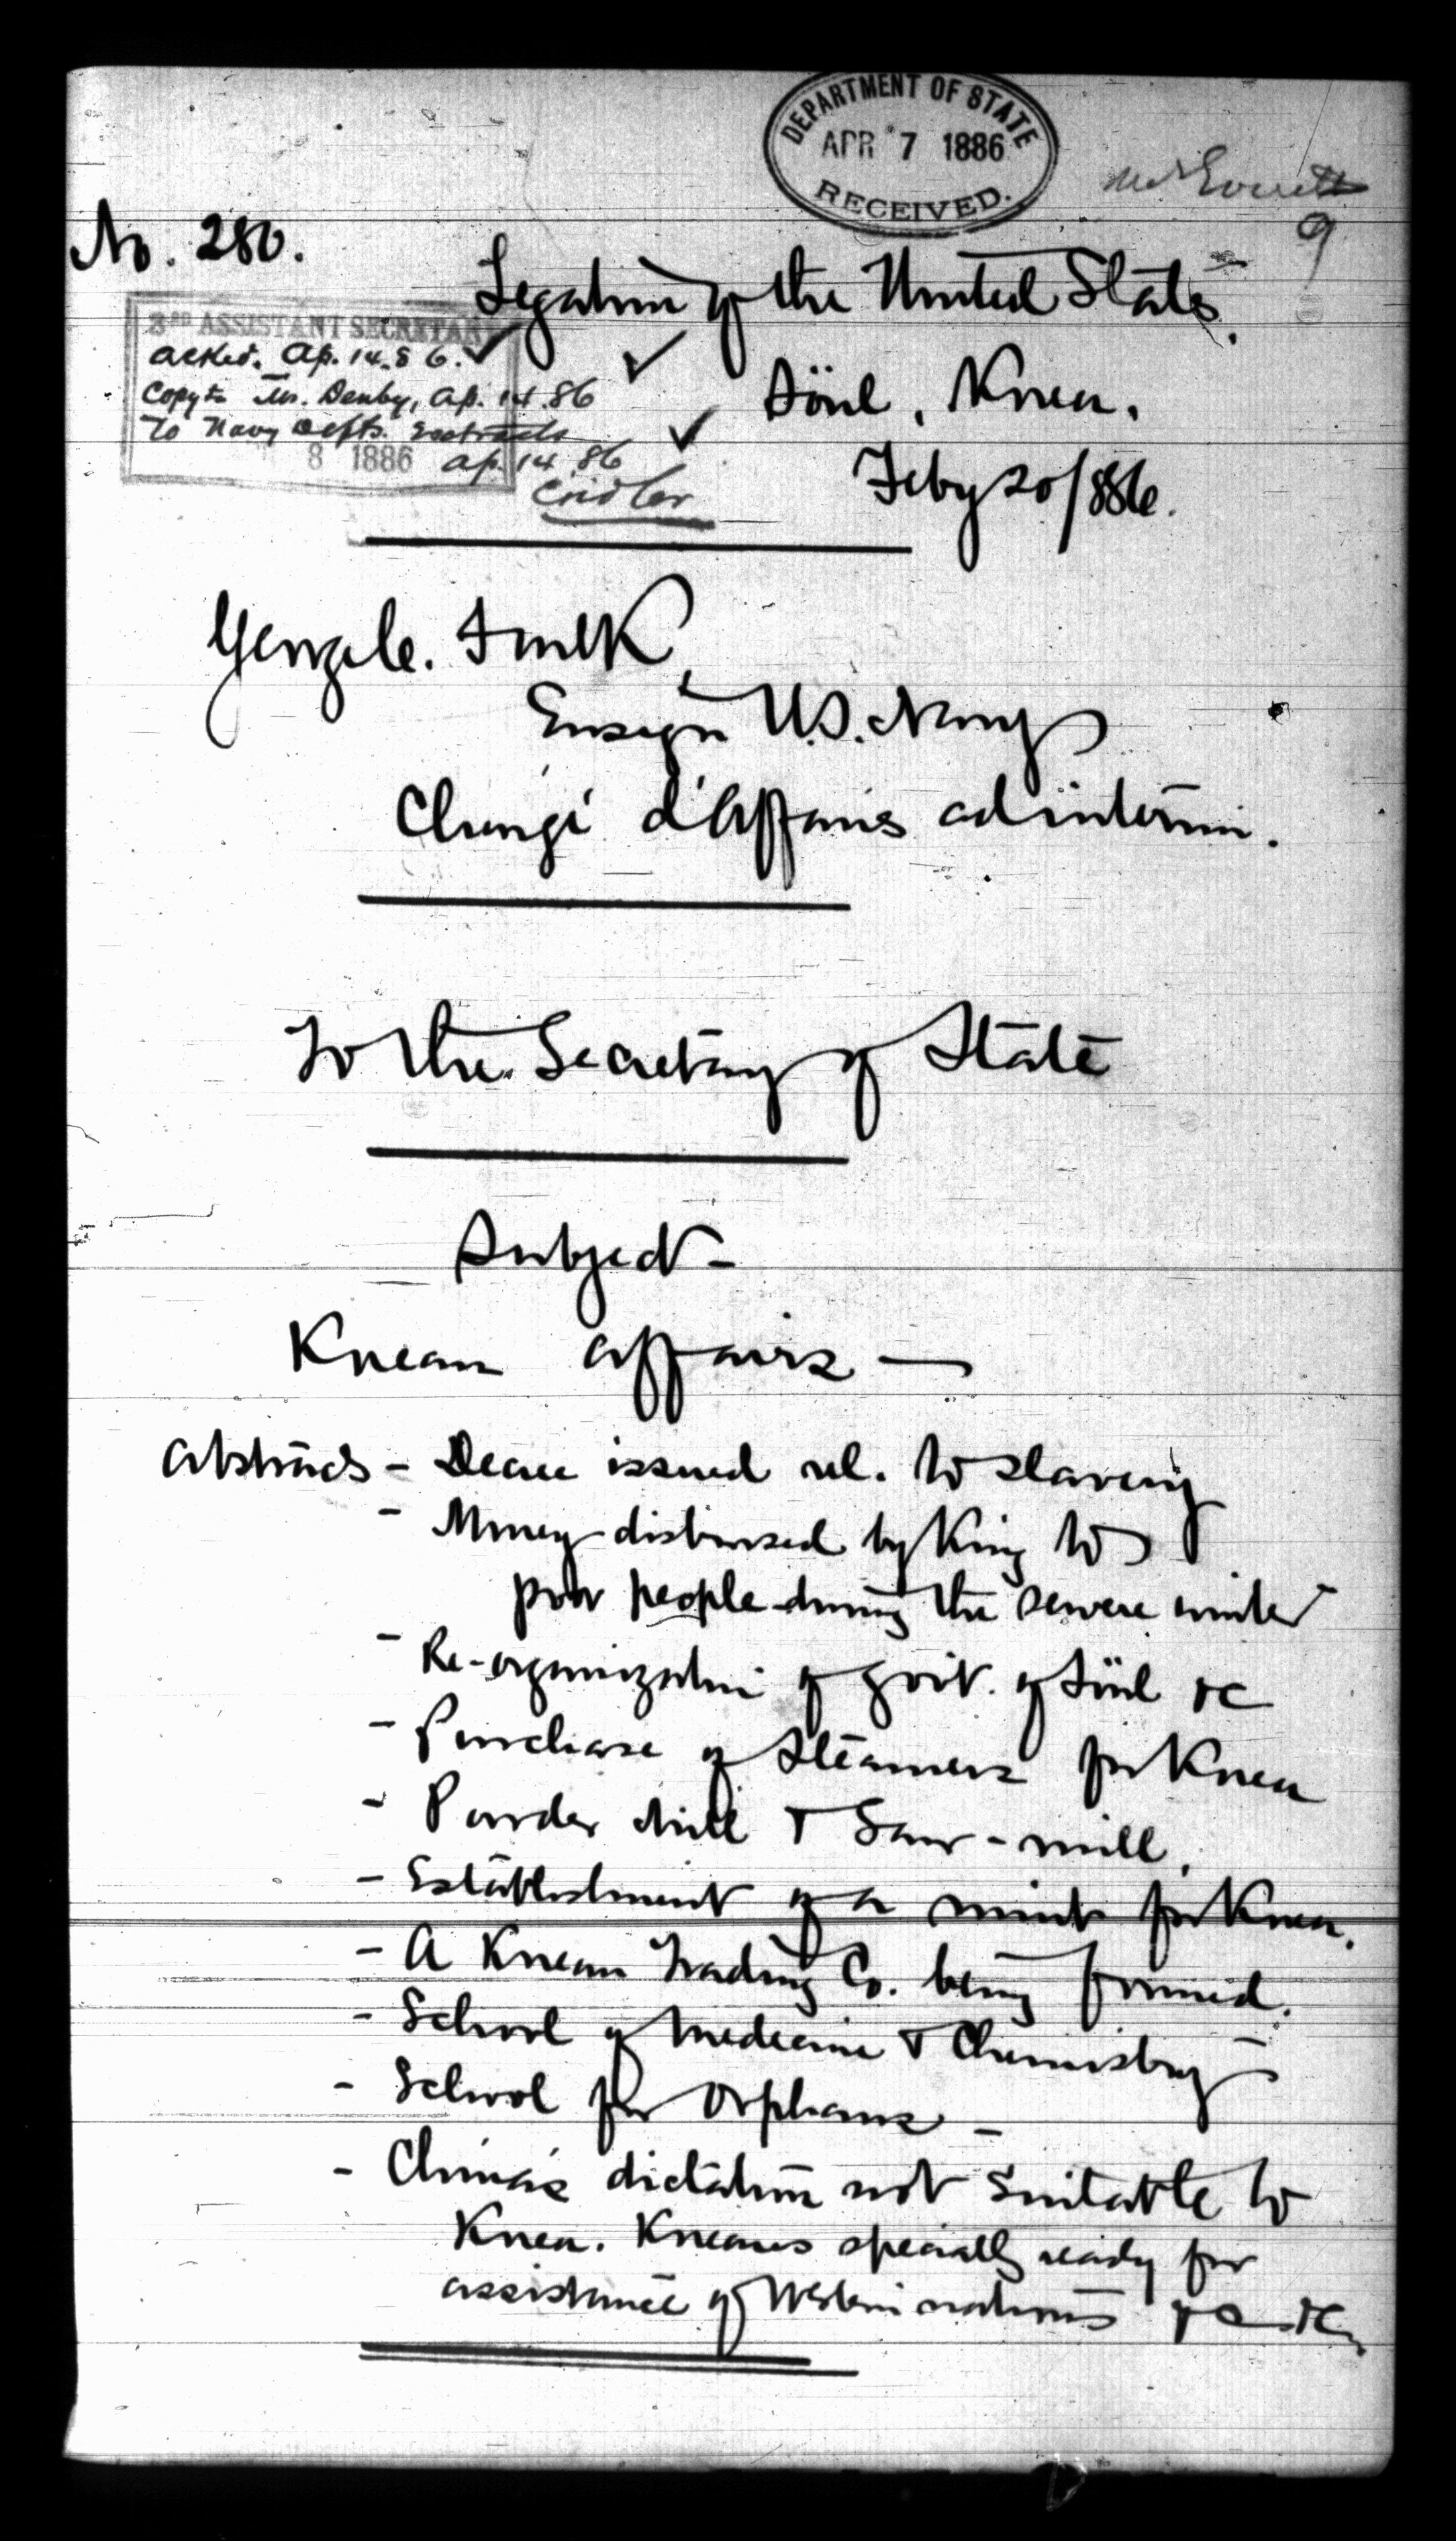 DEPARTMENT OF STATE
APR 7 1886
RECEIVED.
9
No. 280.
Legation of the United States.
3RD ASSISTANT SECRETARY
ackd. Ap. 14. 86. ✓
Copy to Mr. Denby, Ap. 14. 86 ✓
To Navy Dept. Extracts ✓
8 1886 Ap. 14 86
Cridler
Söul, Korea.
Feby 20/886.
George C. Foulk,
Ensign U.S. Navy
Chargé d'Affaires ad interim.
To the Secretary of State
Subject -
Korean affairs —
Abstracts - Decree issued rel. to slavery
- Money disbursed by King to
poor people during the severe winter
- Re-organization of govt. of Söul &c
- Purchase of Steamers for Korea
- Powder Mill & Saw-mill.
- Establishment of a mint for Korea.
- A Korean Trading Co. being formed.
- School of Medecine & Chemistry -
- School for Orphans -
- China's dictation not suitable to
Korea. Koreans specially ready for
assistance of Western nations &c &c